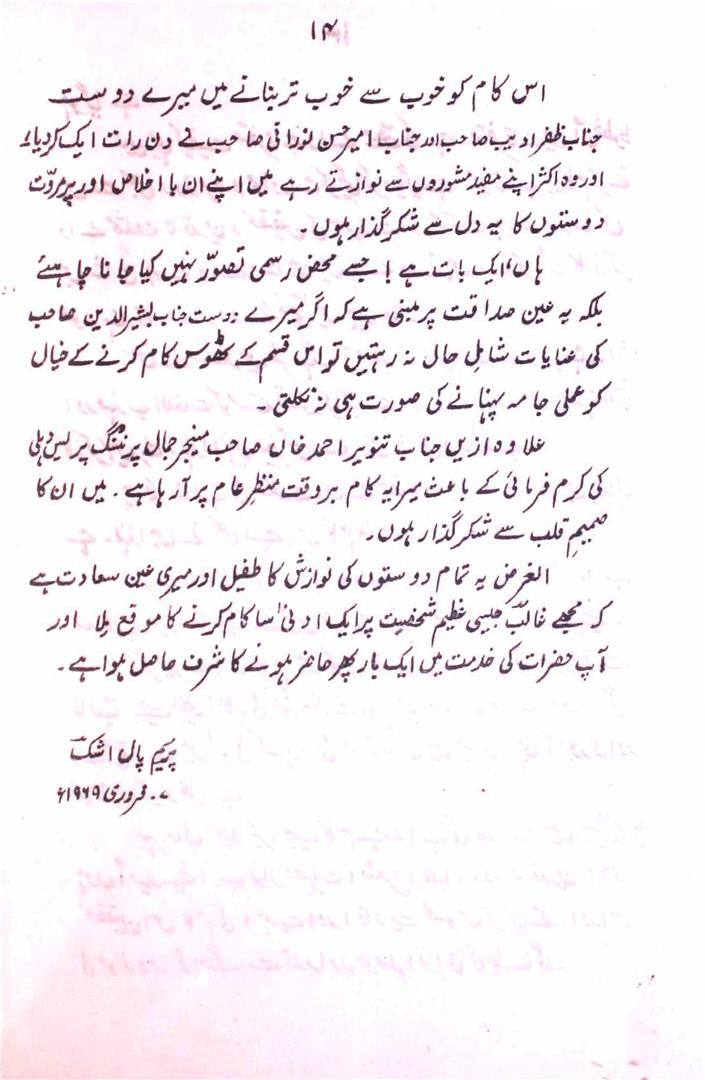 ۱۴
اس کام کو خوب سے خوب تر بنانے میں میرے دوست
جناب ظفر ادیب صاحب اور جناب امیر حسن نورانی صاحب نے دن رات ایک کر دیا ہے
اور وہ اکثر اپنے مفید مشوروں سے نوازتے رہے میں اپنے ان با اخلاص اور پر مروّت
دوستوں کا یہ دل سے شکر گذار ہوں۔
ہاں، ایک بات ہے! جسے محض رسمی تصوّر نہیں کیا جانا چاہئے
بلکہ یہ عین صداقت پر مبنی ہے کہ اگر میرے دوست جناب بشیر الدین صاحب
کی عنایات شاملِ حال نہ رہتیں تو اس قسم کے ٹھوس کام کرنے کے خیال
کو عملی جامہ پہنانے کی صورت ہی نہ نکلتی۔
علاوہ ازیں جناب تنویر احمد خاں صاحب منیجر جمال پرنٹنگ پریس دہلی
کی کرم فرمائی کے باعث میرا یہ کام بر وقت منظرِ عام پر آ رہا ہے۔ میں ان کا
صمیمِ قلب سے شکر گذار ہوں۔
الغرض یہ تمام دوستوں کی نوازش کا طفیل اور میری عین سعادت ہے
کہ مجھے غالبؔ جیسی عظیم شخصیت پر ایک ادنیٰ سا کام کرنے کا موقع ملا اور
آپ حضرات کی خدمت میں ایک بار پھر حاضر ہونے کا شرف حاصل ہوا ہے۔
پریم پال اشکؔ
۷۔ فروری ۱۹۶۹ء